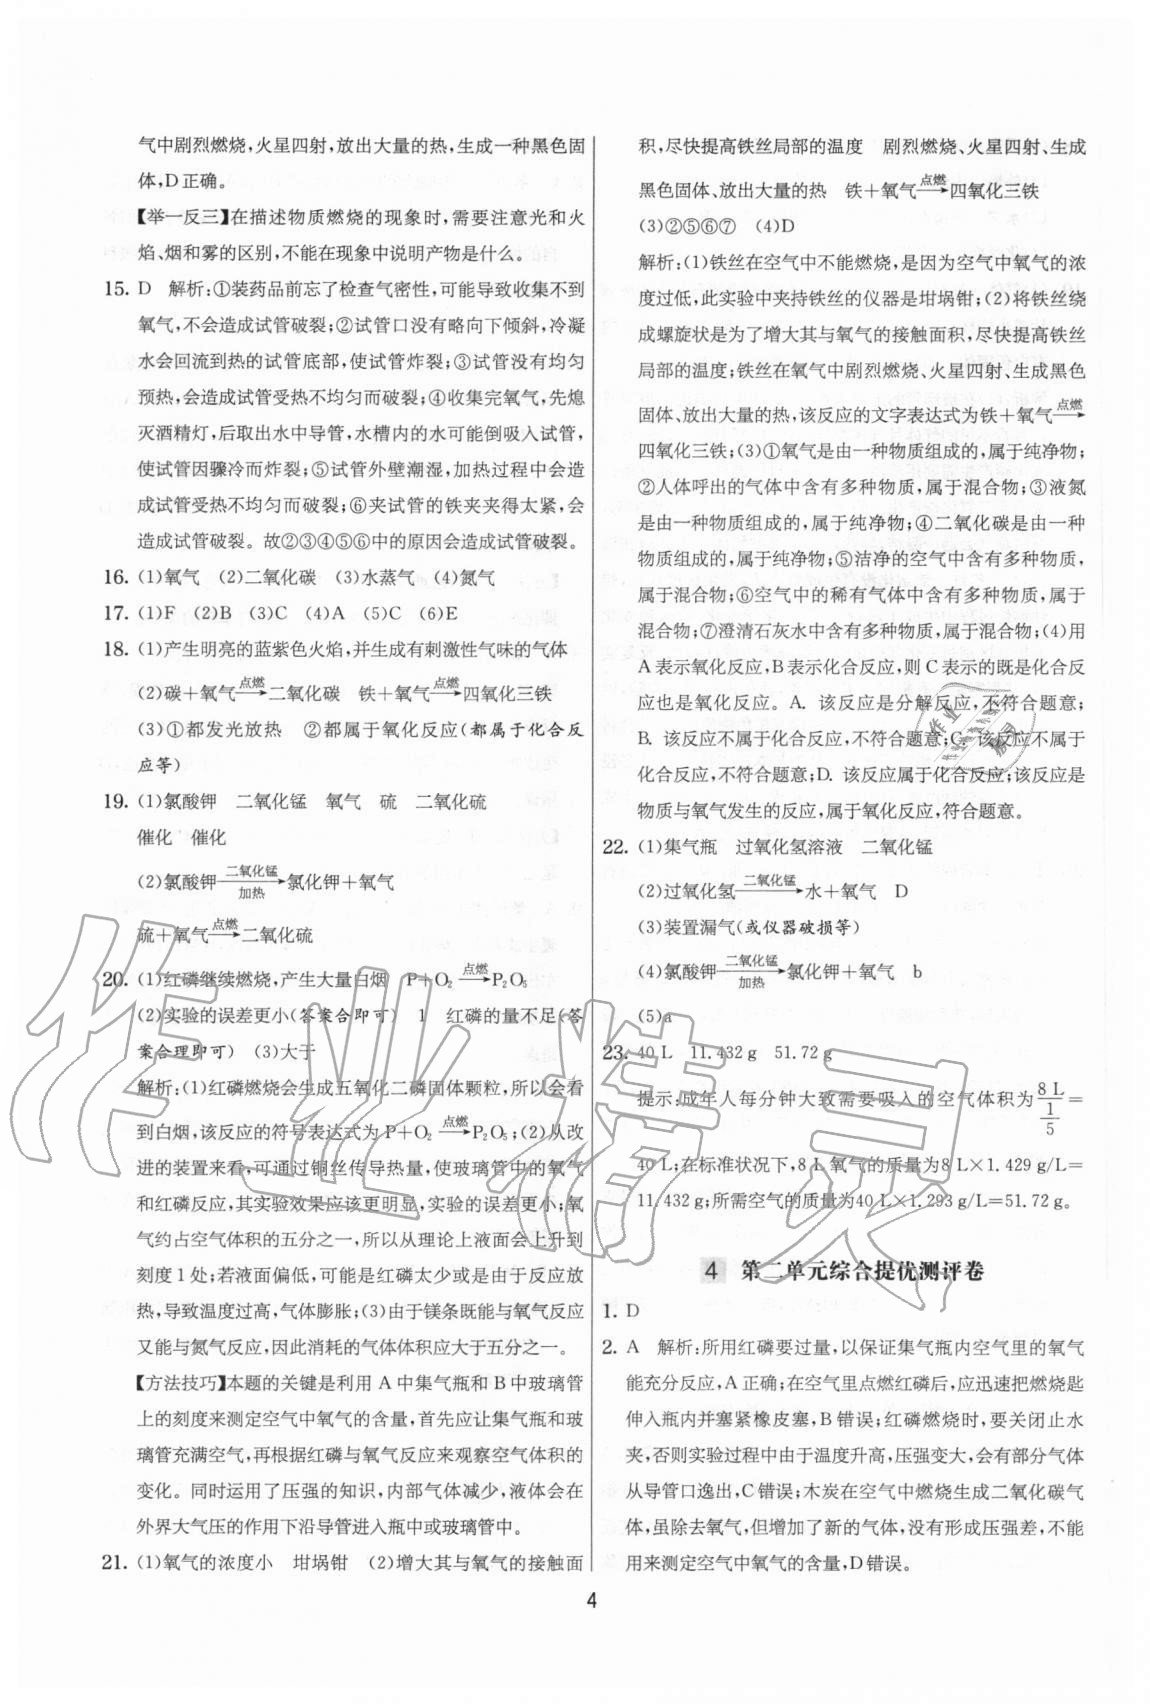 气中剧烈燃烧,火星四射,放出大量的热,生成一种黑色固
体,D正确。
【举一反三】在描述物质燃烧的现象时,需要注意光和火
焰、烟和雾的区别,不能在现象中说明产物是什么。
15. D 解析:①装药品前忘了检查气密性,可能导致收集不到
氧气,不会造成试管破裂;②试管口没有略向下倾斜,冷凝
水会回流到热的试管底部,使试管炸裂;③试管没有均匀
预热,会造成试管受热不均匀而破裂;④收集完氧气,先熄
灭酒精灯,后取出水中导管,水槽内的水可能倒吸入试管,
使试管因骤冷而炸裂;⑤试管外壁潮湿,加热过程中会造
成试管受热不均匀而破裂;⑥夹试管的铁夹夹得太紧,会
造成试管破裂。故②③④⑤⑥中的原因会造成试管破裂。
16. (1)氧气 (2)二氧化碳 (3)水蒸气 (4)氮气
17. (1)F (2)B (3)C (4)A (5)C (6)E
18. (1)产生明亮的蓝紫色火焰,并生成有刺激性气味的气体
(2)碳+氧气 点燃→ 二氧化碳 铁+氧气 点燃→ 四氧化三铁
(3)①都发光放热 ②都属于氧化反应(都属于化合反
应等)
19. (1)氯酸钾 二氧化锰 氧气 硫 二氧化硫
催化 催化
(2)氯酸钾 二氧化锰/加热→ 氯化钾+氧气
硫+氧气 点燃→ 二氧化硫
20. (1)红磷继续燃烧,产生大量白烟 P+O₂ 点燃→ P₂O₅
(2)实验的误差更小(答案合即可) 1 红磷的量不足(答
案合理即可) (3)大于
解析:(1)红磷燃烧会生成五氧化二磷固体颗粒,所以会看
到白烟,该反应的符号表达式为 P+O₂ 点燃→ P₂O₅;(2)从改
进的装置来看,可通过铜丝传导热量,使玻璃管中的氧气
和红磷反应,其实验效果应该更明显,实验的误差更小;氧
气约占空气体积的五分之一,所以从理论上液面会上升到
刻度1处;若液面偏低,可能是红磷太少或是由于反应放
热,导致温度过高,气体膨胀;(3)由于镁条既能与氧气反应
又能与氮气反应,因此消耗的气体体积应大于五分之一。
【方法技巧】本题的关键是利用 A 中集气瓶和 B 中玻璃管
上的刻度来测定空气中氧气的含量,首先应让集气瓶和玻
璃管充满空气,再根据红磷与氧气反应来观察空气体积的
变化。同时运用了压强的知识,内部气体减少,液体会在
外界大气压的作用下沿导管进入瓶中或玻璃管中。
21. (1)氧气的浓度小 坩埚钳 (2)增大其与氧气的接触面
积,尽快提高铁丝局部的温度 剧烈燃烧、火星四射、生成
黑色固体、放出大量的热 铁+氧气 点燃→ 四氧化三铁
(3)②⑤⑥⑦ (4)D
解析:(1)铁丝在空气中不能燃烧,是因为空气中氧气的浓
度过低,此实验中夹持铁丝的仪器是坩埚钳;(2)将铁丝绕
成螺旋状是为了增大其与氧气的接触面积,尽快提高铁丝
局部的温度;铁丝在氧气中剧烈燃烧、火星四射、生成黑色
固体、放出大量的热,该反应的文字表达式为铁+氧气 点燃→
四氧化三铁;(3)①氧气是由一种物质组成的,属于纯净物;
②人体呼出的气体中含有多种物质,属于混合物;③液氮
是由一种物质组成的,属于纯净物;④二氧化碳是由一种
物质组成的,属于纯净物;⑤洁净的空气中含有多种物质,
属于混合物;⑥空气中的稀有气体中含有多种物质,属于
混合物;⑦澄清石灰水中含有多种物质,属于混合物;(4)用
A表示氧化反应,B表示化合反应,则 C表示的既是化合反
应也是氧化反应。A. 该反应是分解反应,不符合题意;
B. 该反应不属于化合反应,不符合题意;C. 该反应不属于
化合反应,不符合题意;D. 该反应属于化合反应;该反应是
物质与氧气发生的反应,属于氧化反应,符合题意。
22. (1)集气瓶 过氧化氢溶液 二氧化锰
(2)过氧化氢 二氧化锰→ 水+氧气 D
(3)装置漏气(或仪器破损等)
(4)氯酸钾 二氧化锰/加热→ 氯化钾+氧气 b
(5)a
23. 40 L 11.432 g 51.72 g
提示:成年人每分钟大致需要吸入的空气体积为 8 L/(1/5) =
40 L;在标准状况下,8 L氧气的质量为8 L×1.429 g/L=
11.432 g;所需空气的质量为40 L×1.293 g/L=51.72 g。
4 第二单元综合提优测评卷
1. D
2. A 解析:所用红磷要过量,以保证集气瓶内空气里的氧气
能充分反应,A正确;在空气里点燃红磷后,应迅速把燃烧匙
伸入瓶内并塞紧橡皮塞,B错误;红磷燃烧时,要关闭止水
夹,否则实验过程中由于温度升高,压强变大,会有部分气体
从导管口逸出,C错误;木炭在空气中燃烧生成二氧化碳气
体,虽除去氧气,但增加了新的气体,没有形成压强差,不能
用来测定空气中氧气的含量,D错误。
4
作业精灵
作业精灵